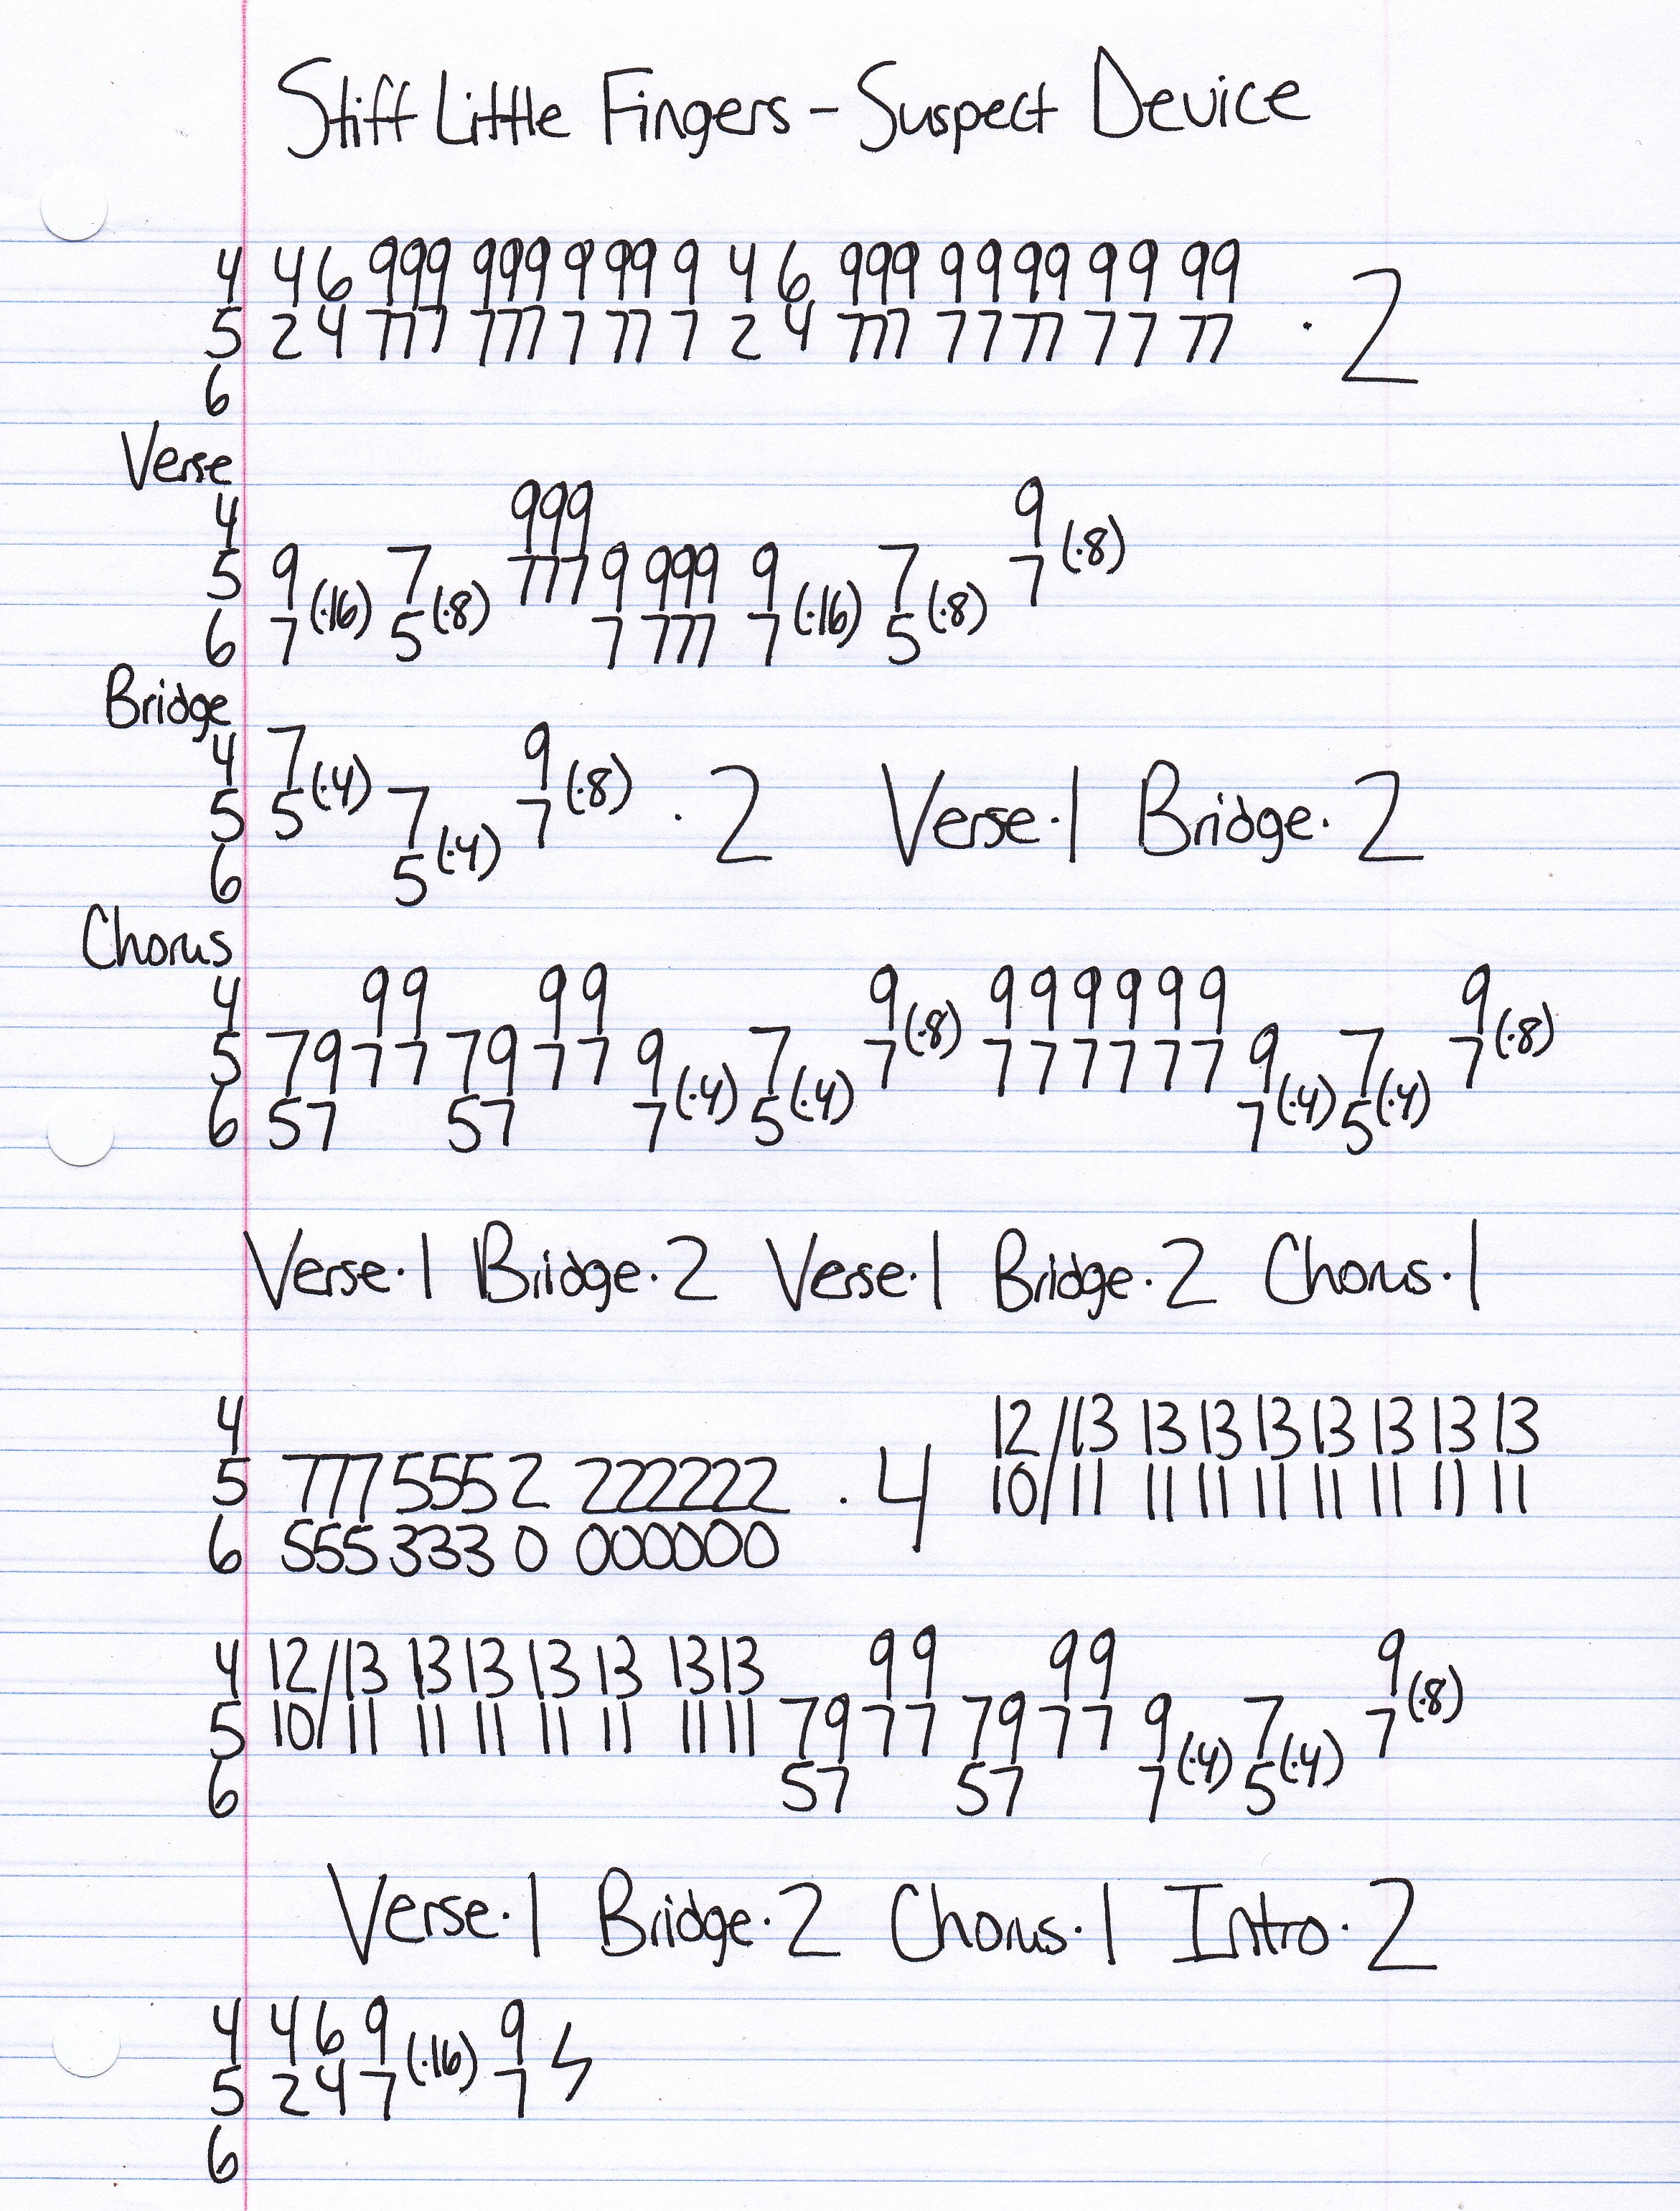 Stiff Little Fingers - Suspect Device
4 4 6 999 999 9 99 9 4 6 999 9 9 99 9 9 99
5 2 4 777 777 7 77 7 2 4 777 7 7 77 7 7 77 · 2
6
Verse
4 999 9
5 9 7 777 9 999 9 7 7 (·8)
6 7 (·16) 5 (·8) 7 777 7 (·16) 5 (·8)
Bridge
4 7 9
5 5 (·4) 7 7 (·8) · 2 Verse·1 Bridge·2
6 5 (·4)
Chorus
4 99 99 9 9 9 9 9 9 9 9
5 79 77 79 77 9 7 7 (·8) 7 7 7 7 7 7 9 7 7 (·8)
6 57 57 7 (·4) 5 (·4) 7 (·4) 5 (·4)
Verse·1 Bridge·2 Verse·1 Bridge·2 Chorus·1
4 12/13 13 13 13 13 13 13 13
5 777 555 2 222222 · 4 10/11 11 11 11 11 11 11 11
6 555 333 0 000000
4 12/13 13 13 13 13 13 13 99 99 9
5 10/11 11 11 11 11 11 11 79 77 79 77 9 7 7 (·8)
6 57 57 7 (·4) 5 (·4)
Verse·1 Bridge·2 Chorus·1 Intro·2
4 4 6 9 9
5 2 4 7 (·16) 7
6